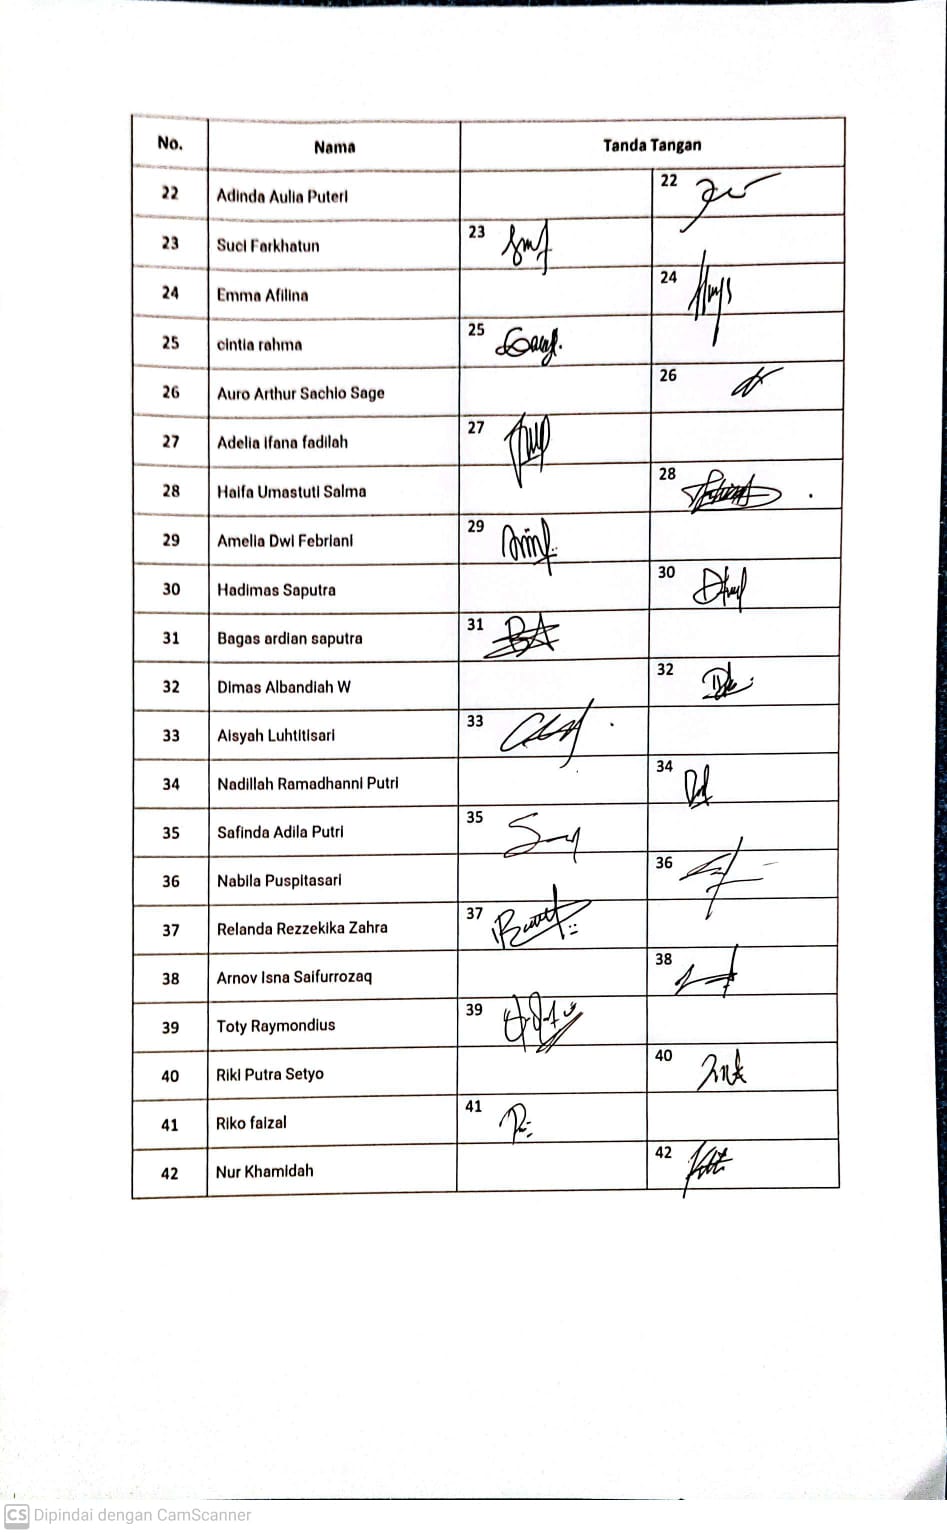 No. Nama Tanda Tangan
22 Adinda Aulia Puteri 22
23 Suci Farkhatun 23
24 Emma Afilina 24
25 cintia rahma 25
26 Auro Arthur Sachio Sage 26
27 Adelia Ifana fadilah 27
28 Haifa Umastuti Salma 28
29 Amelia Dwi Febriani 29
30 Hadimas Saputra 30
31 Bagas ardian saputra 31
32 Dimas Albandiah W 32
33 Aisyah Luhtitisari 33
34 Nadillah Ramadhanni Putri 34
35 Safinda Adila Putri 35
36 Nabila Puspitasari 36
37 Relanda Rezzekika Zahra 37
38 Arnov Isna Saifurrozaq 38
39 Toty Raymondius 39
40 Riki Putra Setyo 40
41 Riko faizal 41
42 Nur Khamidah 42
CS Dipindai dengan CamScanner